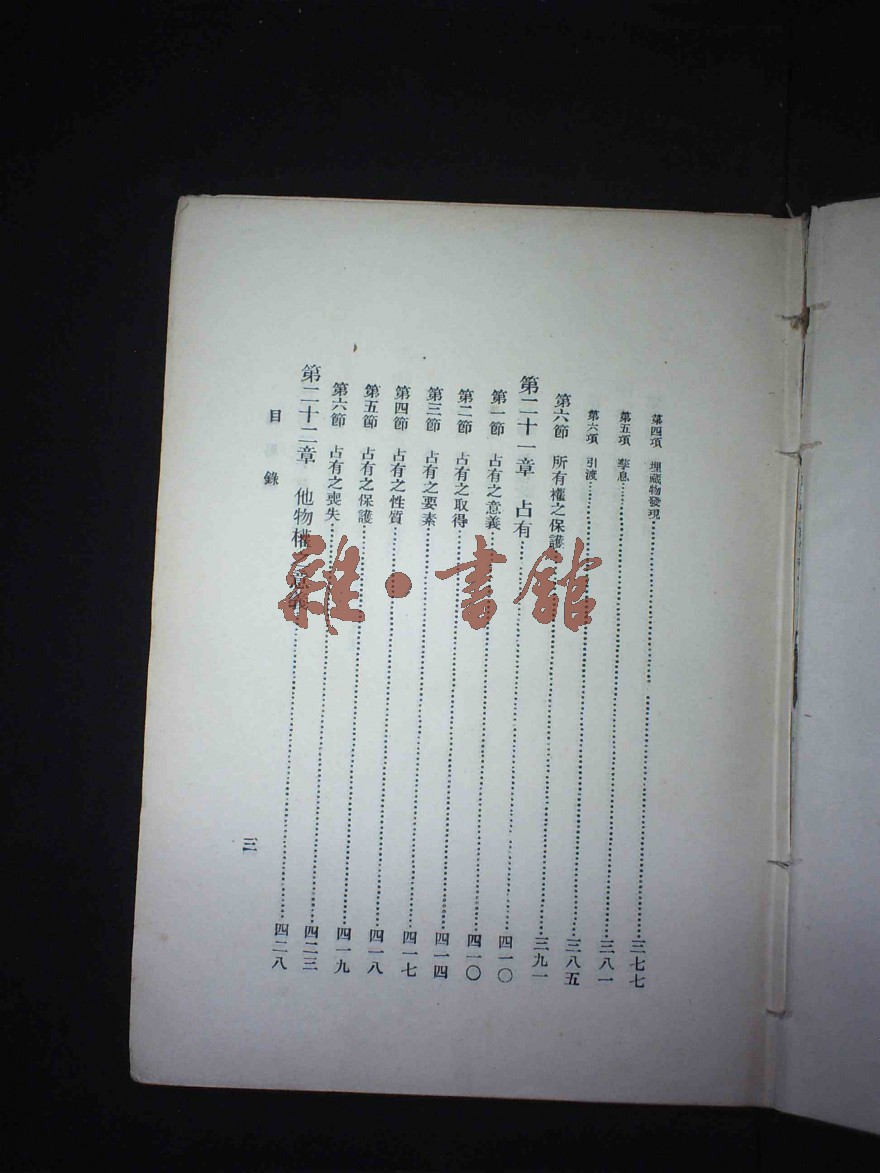 第四項 埋藏物發現……三七七
第五項 孳息……三八一
第六項 引渡……三八五
第六節 所有權之保護……三九一
第二十一章 占有……四一〇
第一節 占有之意義……四一〇
第二節 占有之取得……四一四
第三節 占有之要素……四一七
第四節 占有之性質……四一八
第五節 占有之保護……四一九
第六節 占有之喪失……四二三
第二十二章 他物權 意義……四二八
目錄
三
雜·書館